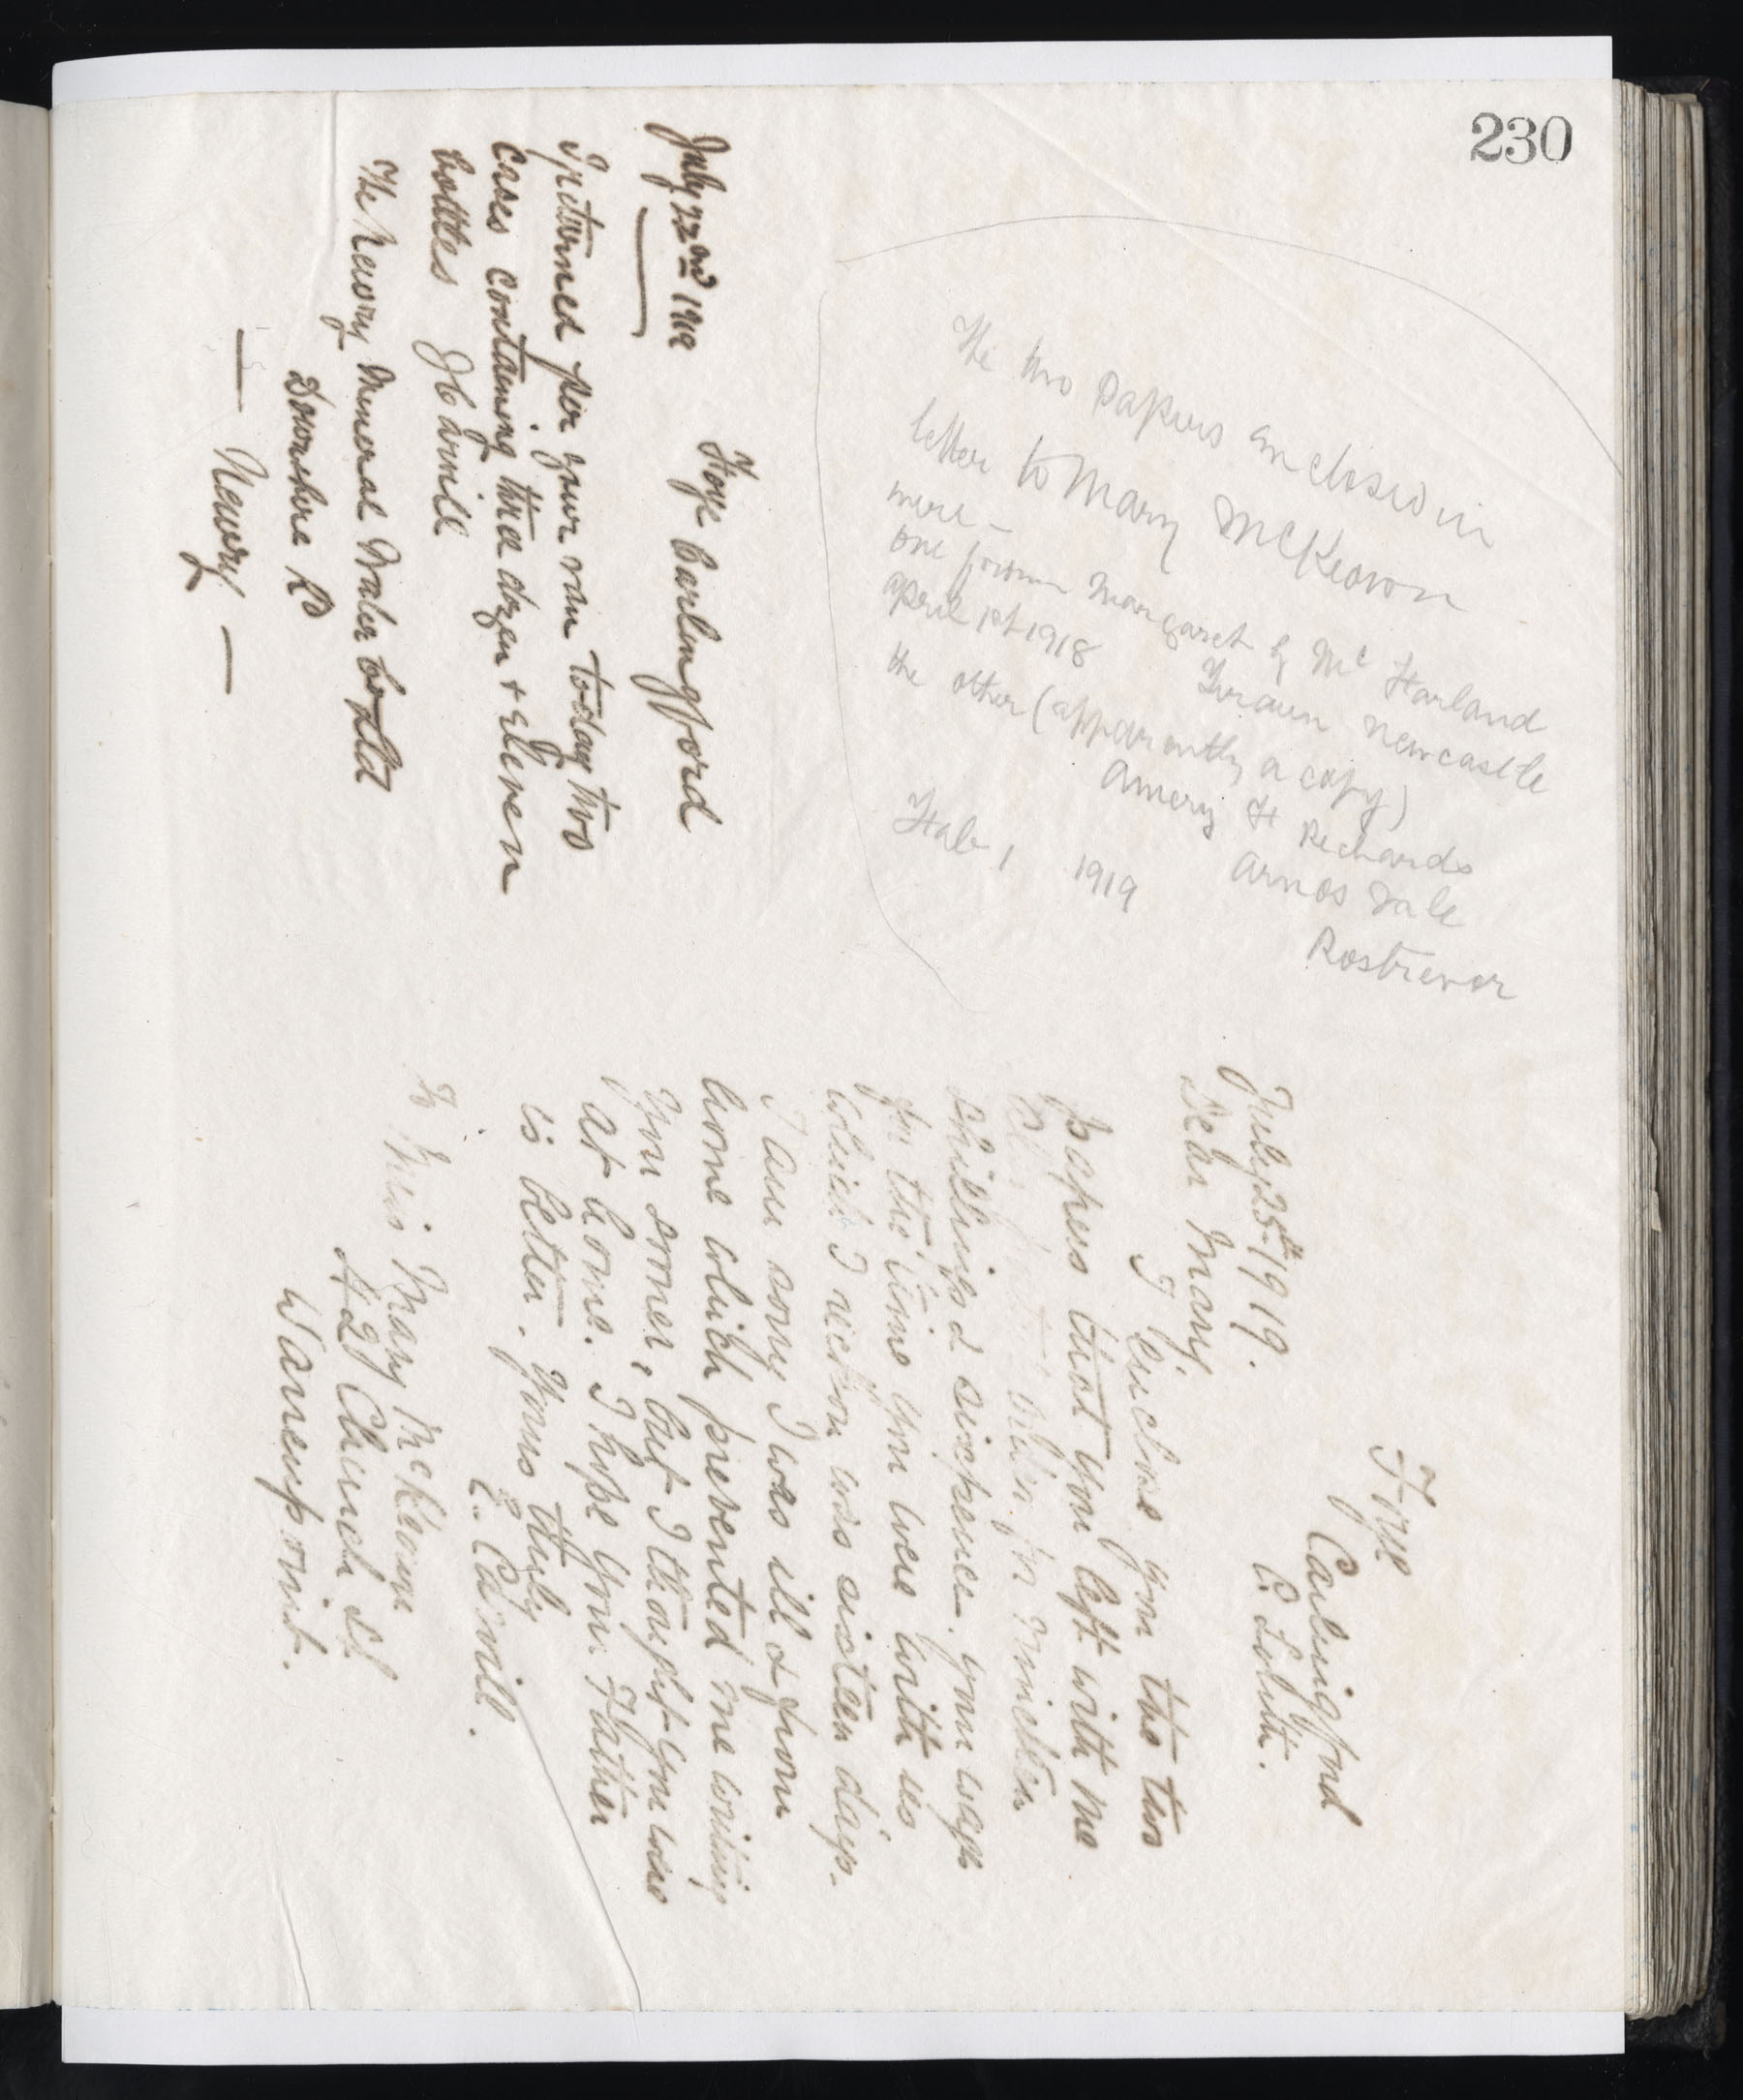 230
The two papers enclosed in
letter to Mary McKeown
were -
one from Margaret G McHarland
April 1st 1918 Newcastle
the other (apparently a copy)
Amery H Richards
1919 Arnos Vale
Rostrevor
Foye Carlingford
July 22nd 1919
I returned per your van today two
cases containing three dozen + eleven
bottles J Carvill
The Newry Mineral Water Co Ltd
Downshire Rd
— Newry —
Foye
Carlingford
Co. Louth.
July 25th 1919.
Dear Mary
I enclose you the two
papers that you left with me
for nineteen
shillings & sixpence. Your wages
for the time you were with us
which I reckon was sixteen days.
I am sorry I was ill & from
home which prevented me writing
you sooner, but I thought you were
at home. I hope your Father
is better. Yours truly
E. Carvill.
To Miss Mary McKeown
Church St
Warrenpoint.